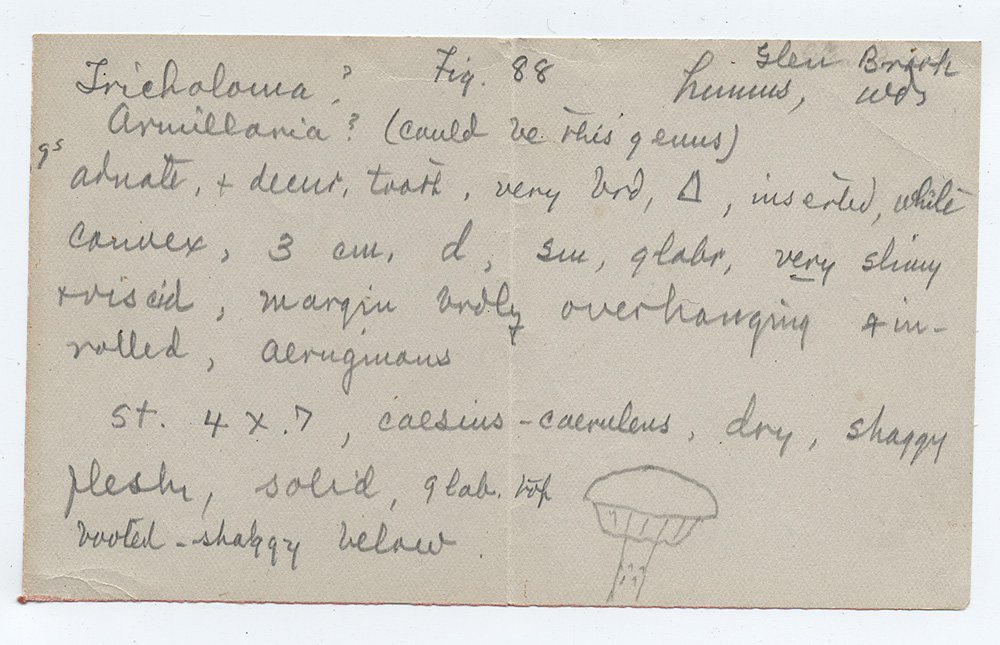 Tricholoma? Fig. 88 Glen Brook
humus, wds
Armillaria? (could be this genus)
gs
adnate, + decur. tooth, very brd, Δ, inserted, white
convex, 3 cm. d, sm, glabr, very slimy
+ viscid, margin brdly overhanging + in-
rolled, aeruginous
St. 4 x .7, caesius-caeruleus, dry, shaggy
fleshy, solid, glab. top
booted-shaggy below.